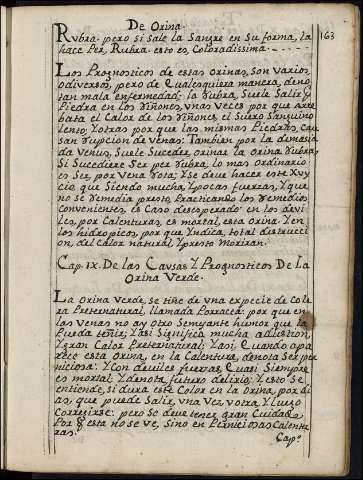 De Orina.
163
Rubra. pero si sale la Sangre en Su forma, la
hace Per Rubra. esto es, Coloradissima.
Los Prognosticos de estas Orinas, son varios,
o diversos, pero de Qualequiera manera, deno
tan mala enfermedad; la rubra, Suele Salir
Piedra en los riñones, unas veces por que arre
bata el Calor de los riñones el Suero Sanguino
lento; Y otras por que las mismas Piedras, cau
san rupcion de Venas; Tambien por la demasia
da Venus, Suele Suceder Orinar la Orina rubra,
Si Sucediere Ser per rubra, lo mas ordinario
es Ser por Vena rota; Y se deve hacer este Xuy
cio que Siendo mucha, Y pocas fuerzas, Y que
no se remedia presto, Practicando los remedios
convenientes, es Caso desesperado; en los devi
les, por Calenturas, es mortal esta Orina; Y en
los hidropicos, por que Yndica, total distrucci
on, del calor natural Y presto Moriran.
Cap. IX. De las Causas Y Prognosticos De La
Orina Verde.
La Orina Verde, se tiñe de una especie de Cole
ra Preternatural, llamada Porracea: por que en
las venas no ay otro Semejante humor que la
Pueda teñir; Y asi Significa mucha adustion,
Y gran Calor Preternatural; Y asi, Quando apa
rece esta Orina, en la Calentura, denota Ser per
niciosa; Y con deviles fuerzas, Quasi Siempre
es mortal; Y denota futuro delirio; Y esto Se
entiende, si dura este Color en la Orina, por di
as, que puede Salir, una Vez u otra, Y luego
Corregirse: pero Se deve tener gran Cuidado,
Por q esta no se ve, Sino en Perniciosas Calentu
ras.
Cap.